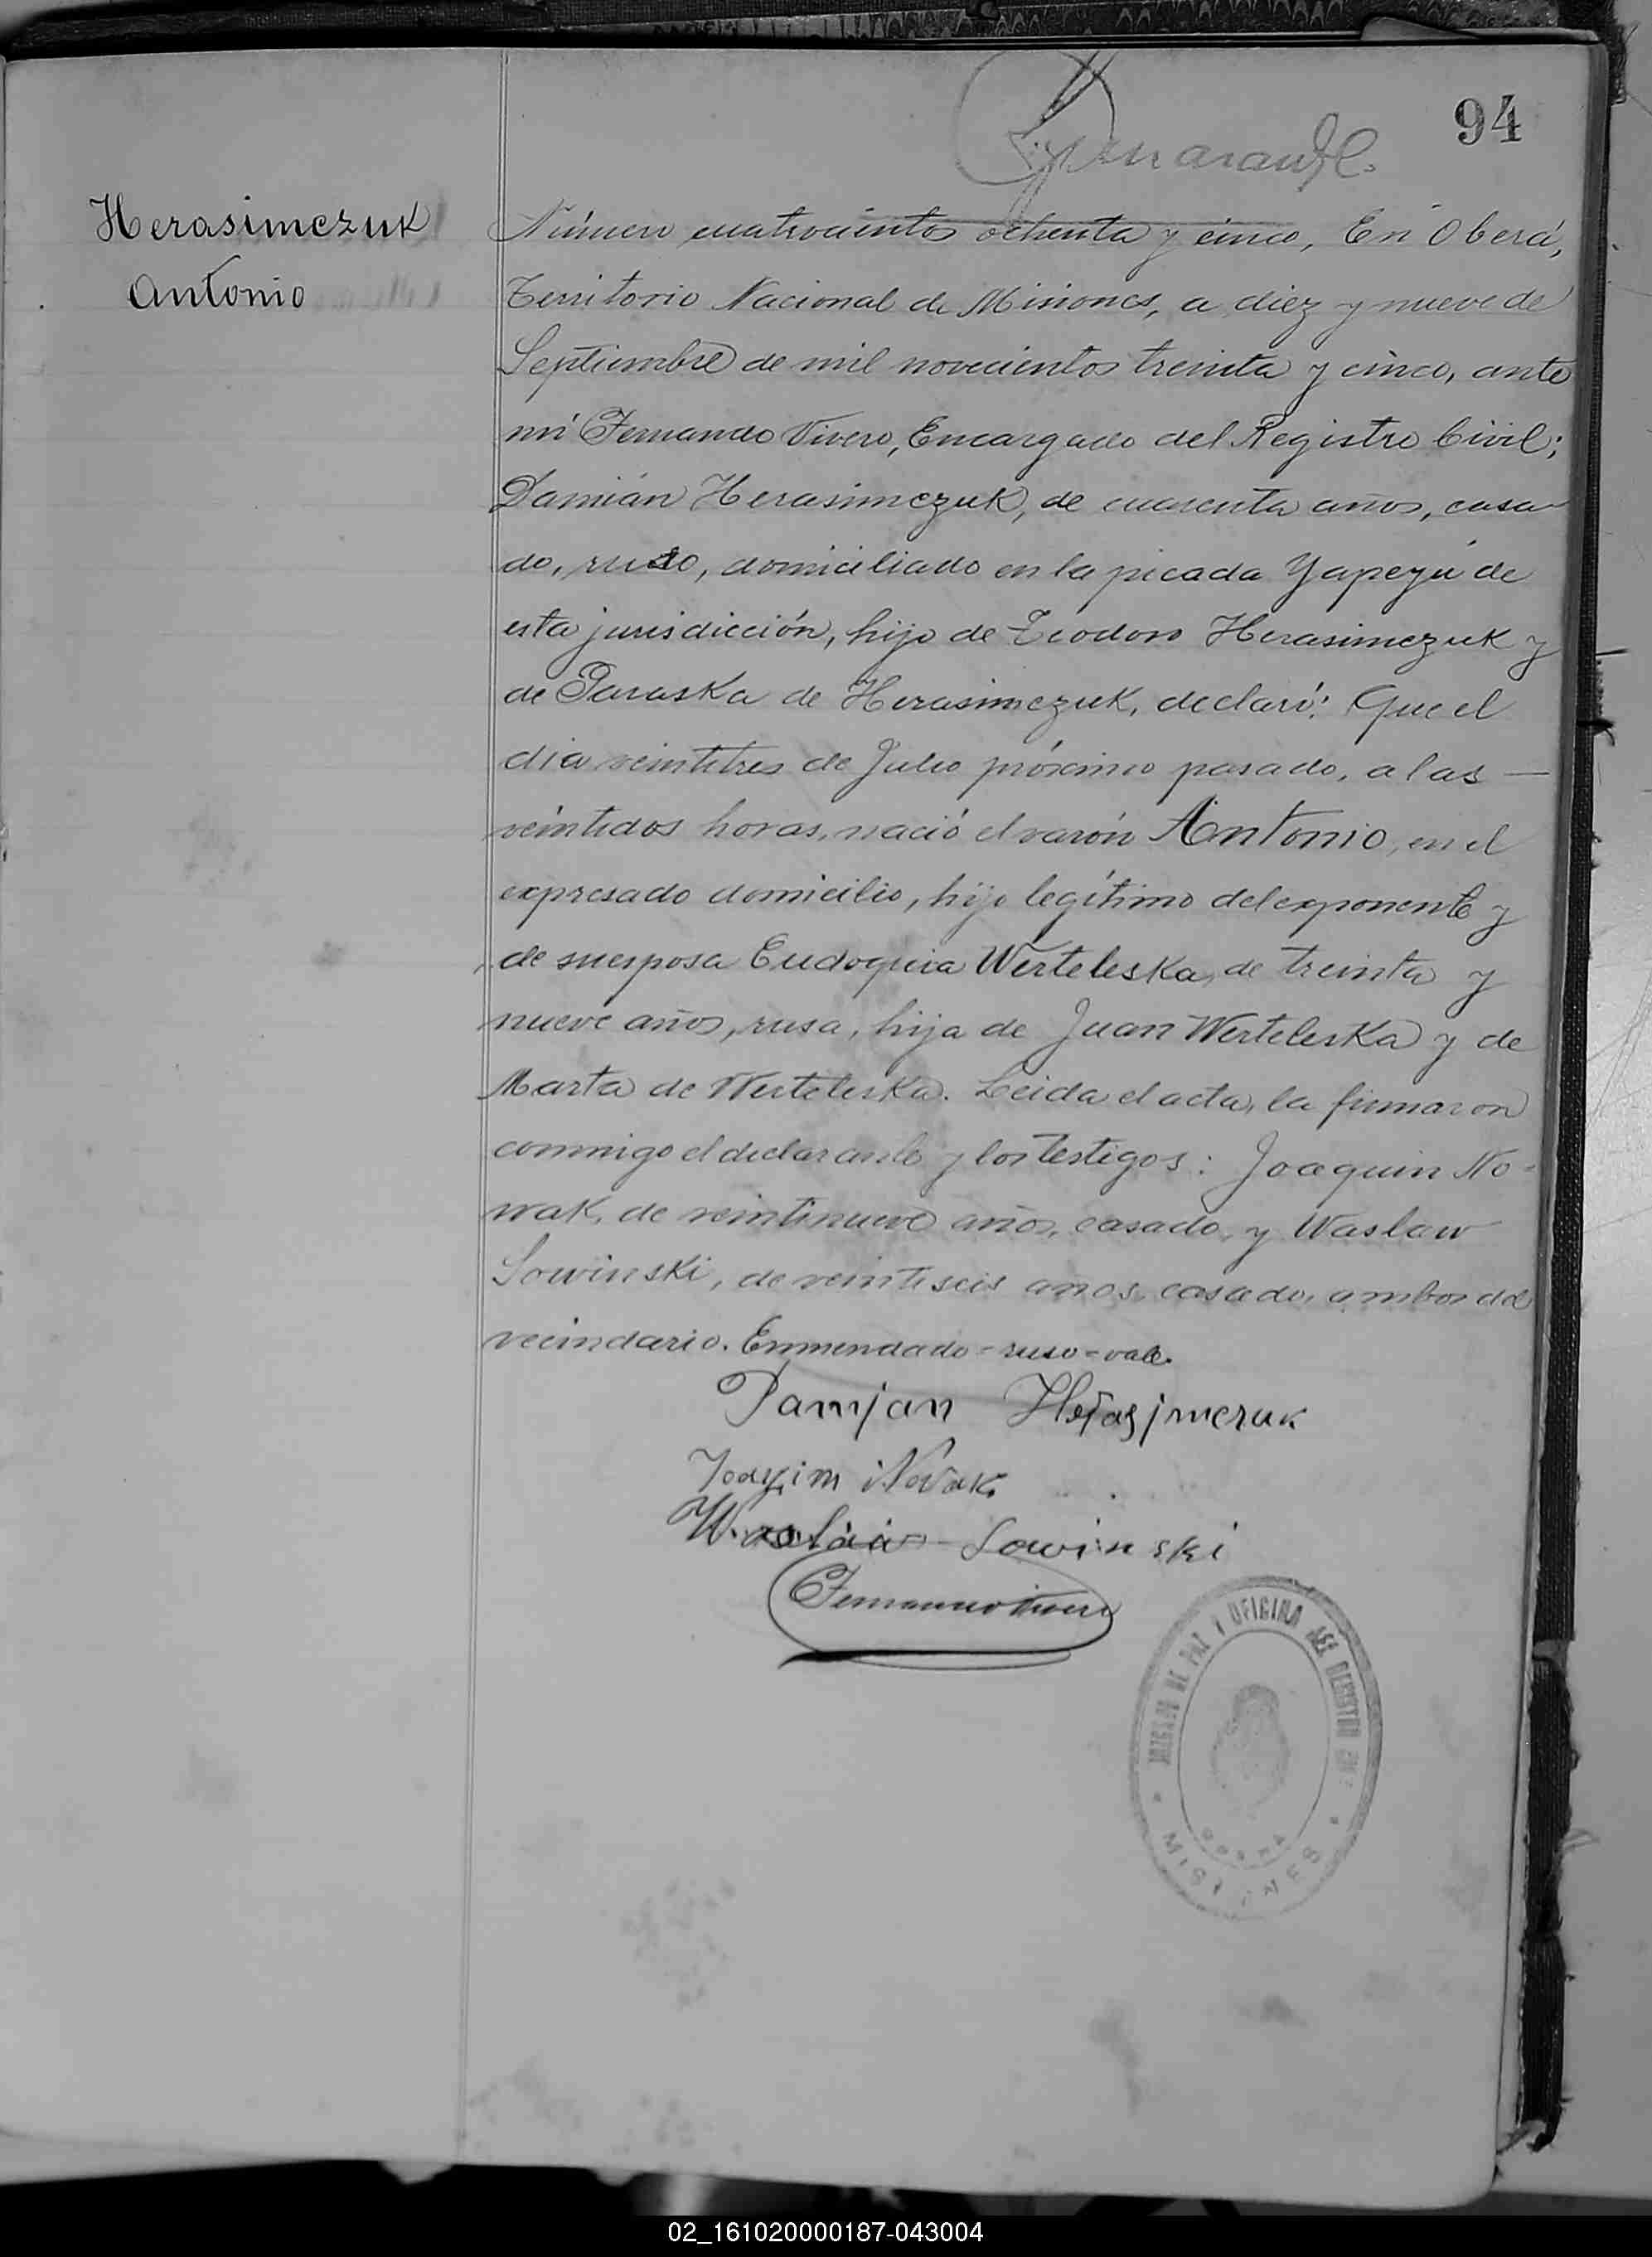 94
Herasimczuk
Antonio
Número cuatrocientos ochenta y cinco, En Oberá,
Territorio Nacional de Misiones, a diez y nueve de
Septiembre de mil novecientos treinta y cinco, ante
mí Fernando Vivero, Encargado del Registro Civil;
Damián Herasimczuk, de cuarenta años, casa-
do, ruso, domiciliado en la picada Yapeyú de
esta jurisdicción, hijo de Teodoro Herasimczuk y
de Paraska de Herasimczuk, declaró: Que el
día veintitres de Julio próximo pasado, a las —
veintidos horas, nació el varón Antonio, en el
expresado domicilio, hijo legítimo del exponente y
de su esposa Eudoquia Werteleska, de treinta y
nueve años, rusa, hija de Juan Werteleska y de
Marta de Werteleska. Leida el acta, la firmaron
conmigo el declarante y los testigos: Joaquin No-
wak, de veintinueve años, casado, y Waslaw
Sowinski, de veintiseis años, casado, ambos del
vecindario. Enmendado = ruso = vale.
Damjan Herasjmczuk
Nowak
Sowinski
Fernando Vivero
JUZGADO DE PAZ Y OFICINA DEL REGISTRO
MISIONES
02_161020000187-043004